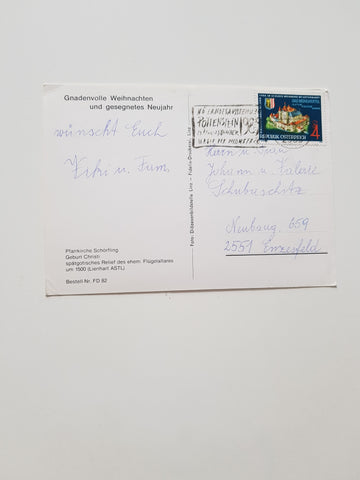 Gnadenvolle Weihnachten
und gesegnetes Neujahr
wünscht Euch
Pfarrkirche Schörfling
Geburt Christi
spätgotisches Relief des ehem. Flügelaltares
um 1500 (Lienhart ASTL)
Bestell-Nr. FD 82
Foto: Diözesanbildstelle Linz – Fidelis-Druckerei Linz
POTTENSTEIN
REPUBLIK ÖSTERREICH
4
Herrn u. Frau
Johann u. Valerie
Neubaug. 659
2551 Enzesfeld